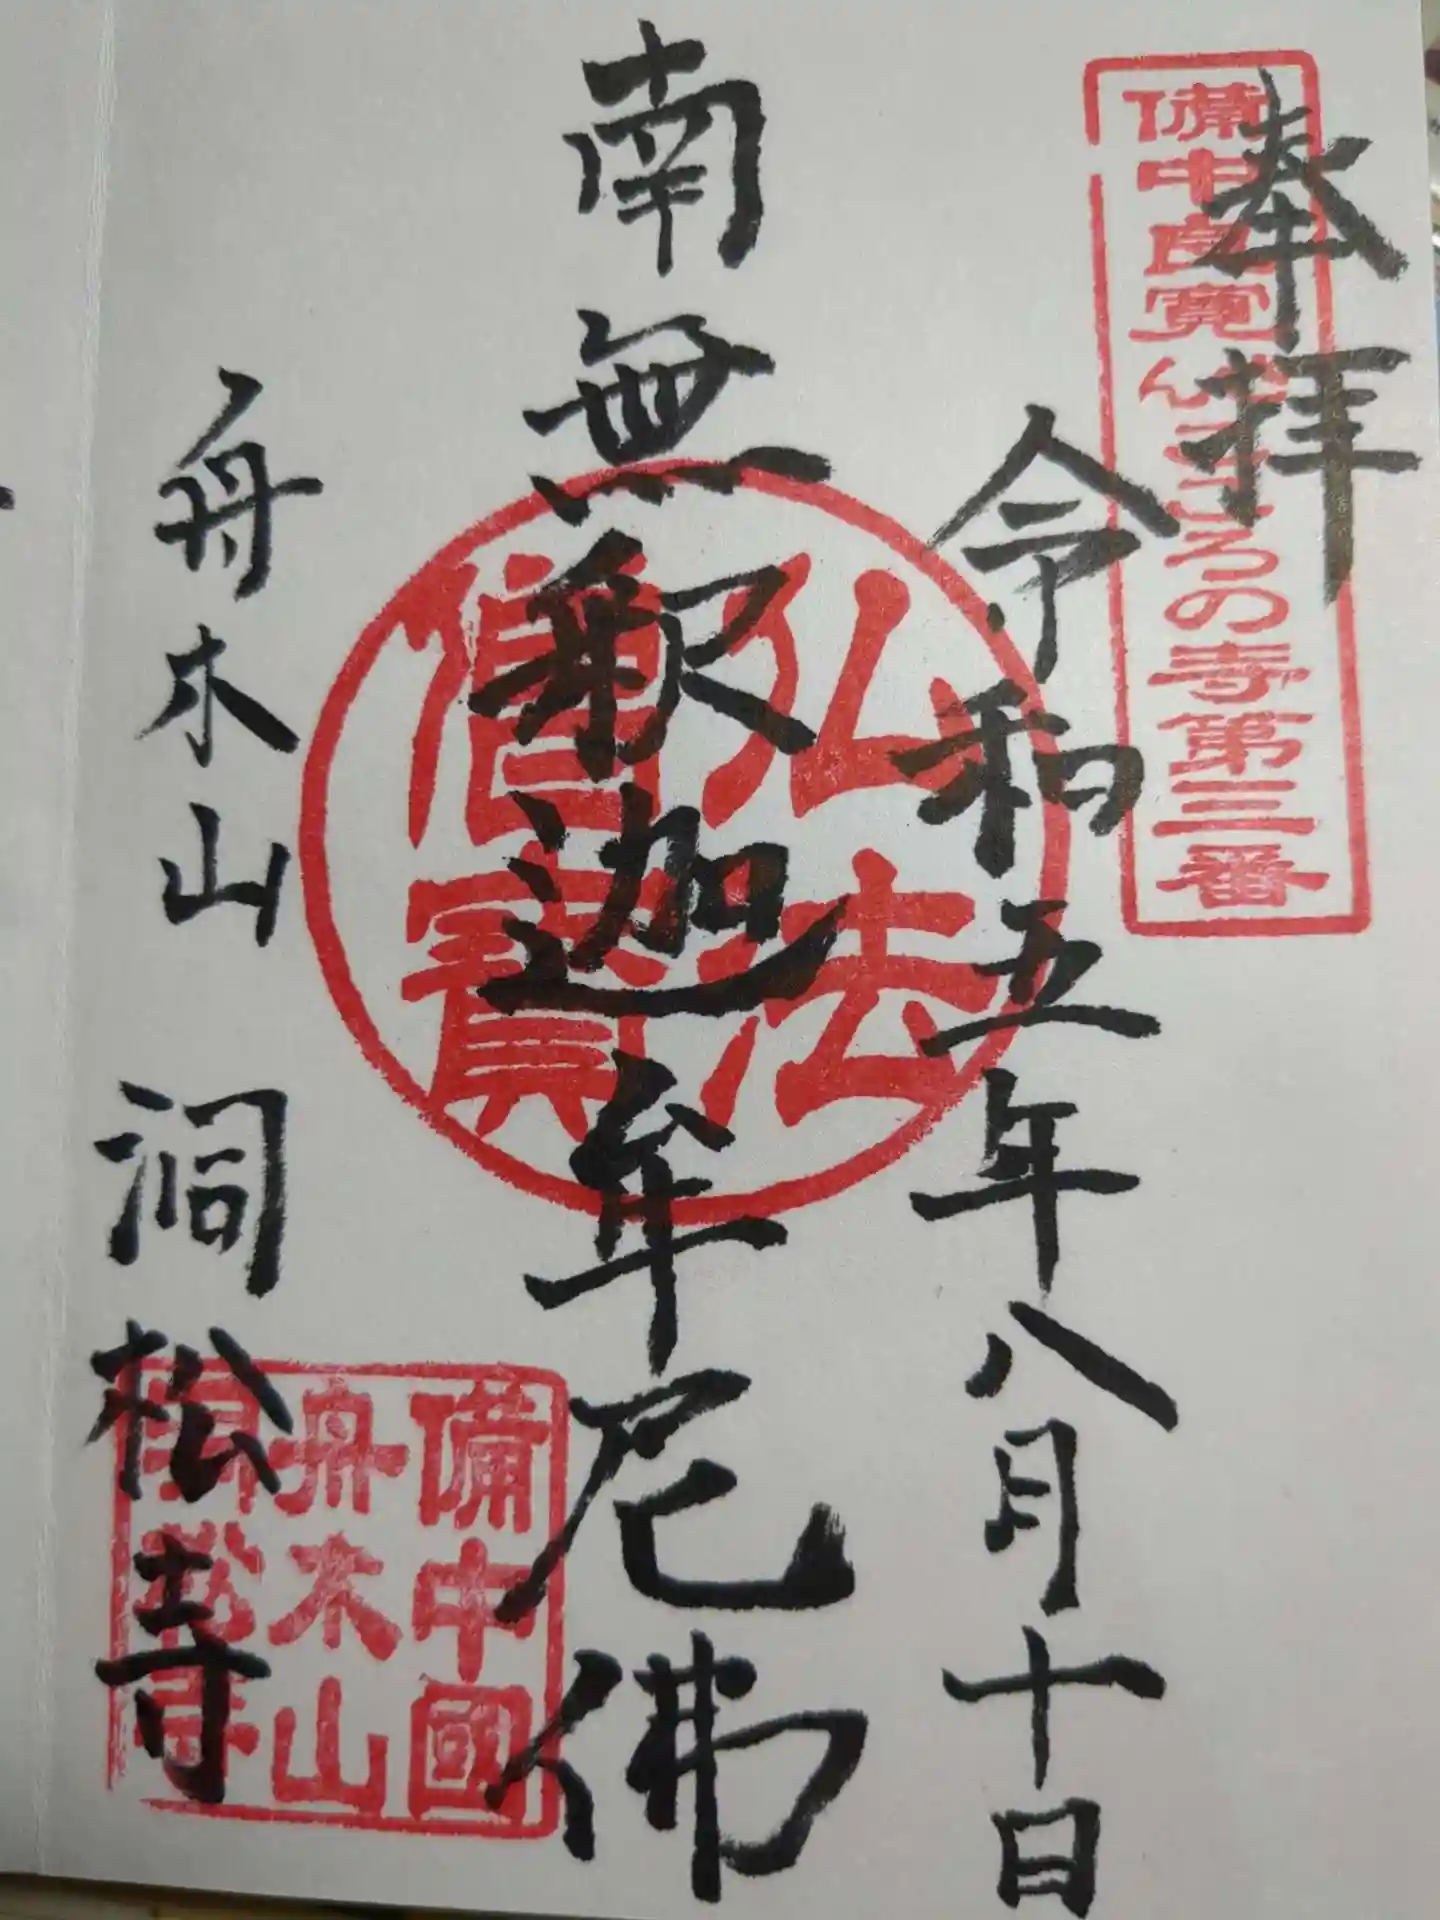 奉拝
備中良寛こころの寺第三番
令和五年八月十日
南無釈迦牟尼佛
仏法僧寳
舟木山 洞松寺
備中國
舟木山
洞松寺